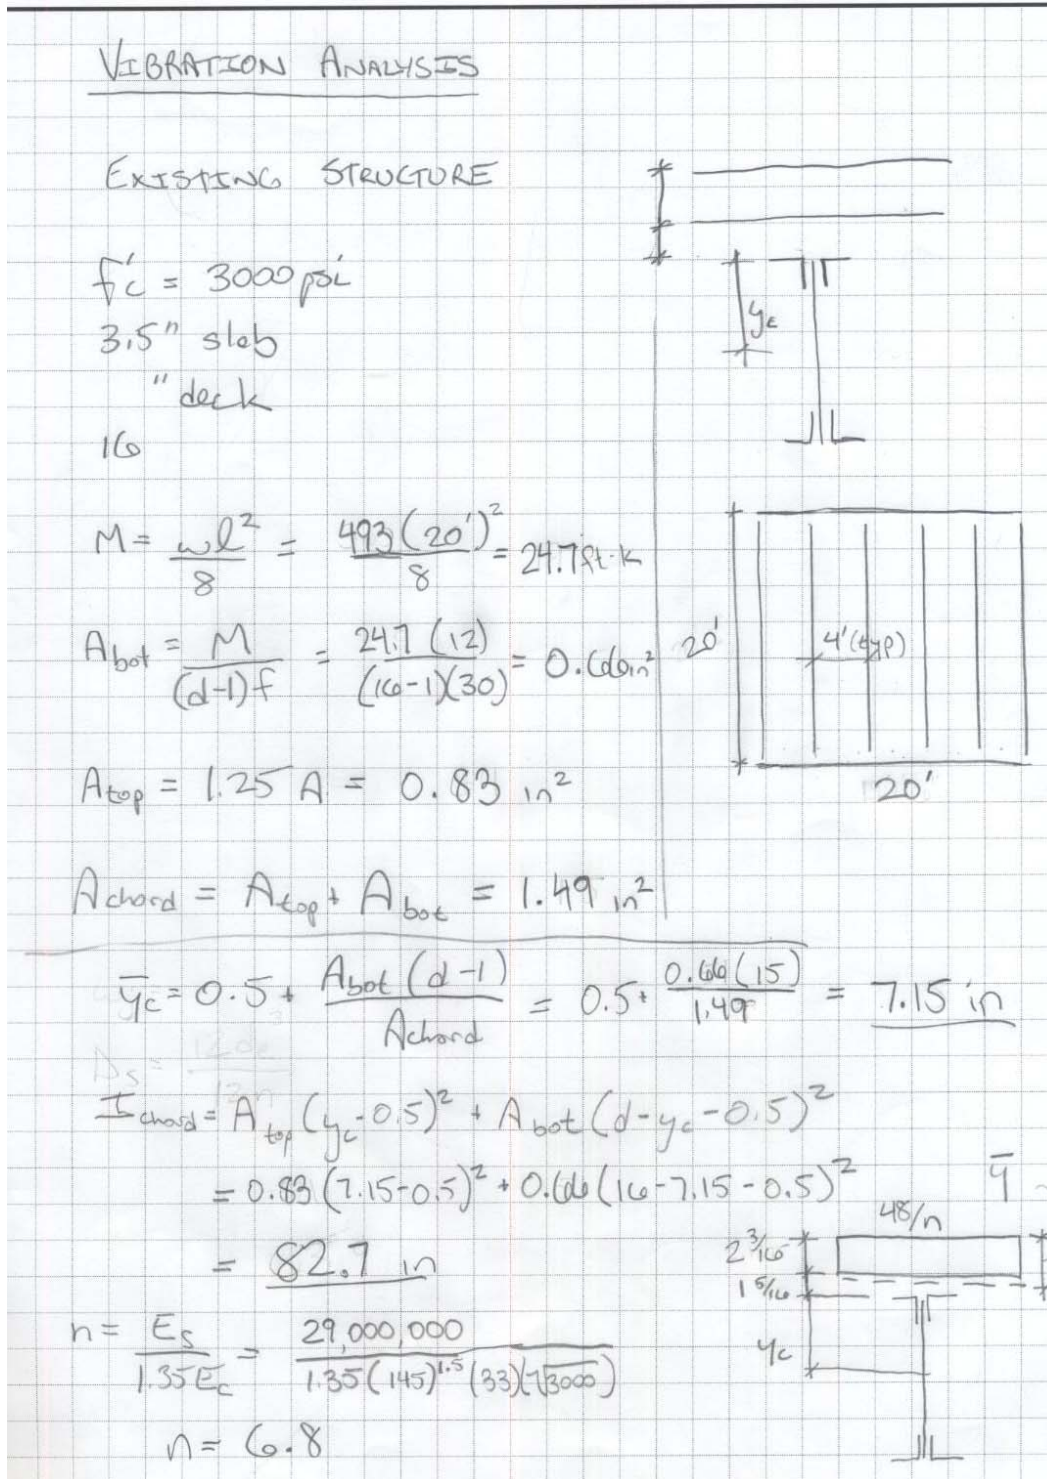 VIBRATION ANALYSIS
EXISTING STRUCTURE
f'c = 3000 psi
3.5" slab
" deck
16
yc
M = ωl² / 8 = 493(20')² / 8 = 24.7 ft·k
Abot = M / (d-1)f = 24.7(12) / (16-1)(30) = 0.66 in²
20'
4'(typ)
20'
Atop = 1.25 A = 0.83 in²
Achord = Atop + Abot = 1.49 in²
ȳc = 0.5 + Abot(d-1) / Achord = 0.5 + 0.66(15) / 1.49 = 7.15 in
Ichord = Atop(yc-0.5)² + Abot(d-yc-0.5)²
= 0.83(7.15-0.5)² + 0.66(16-7.15-0.5)²
= 82.7 in
ȳ
48/n
2 3/16
1 5/16
yc
n = Es / 1.35Ec = 29,000,000 / 1.35(145)^1.5 (33)(√3000)
n = 6.8